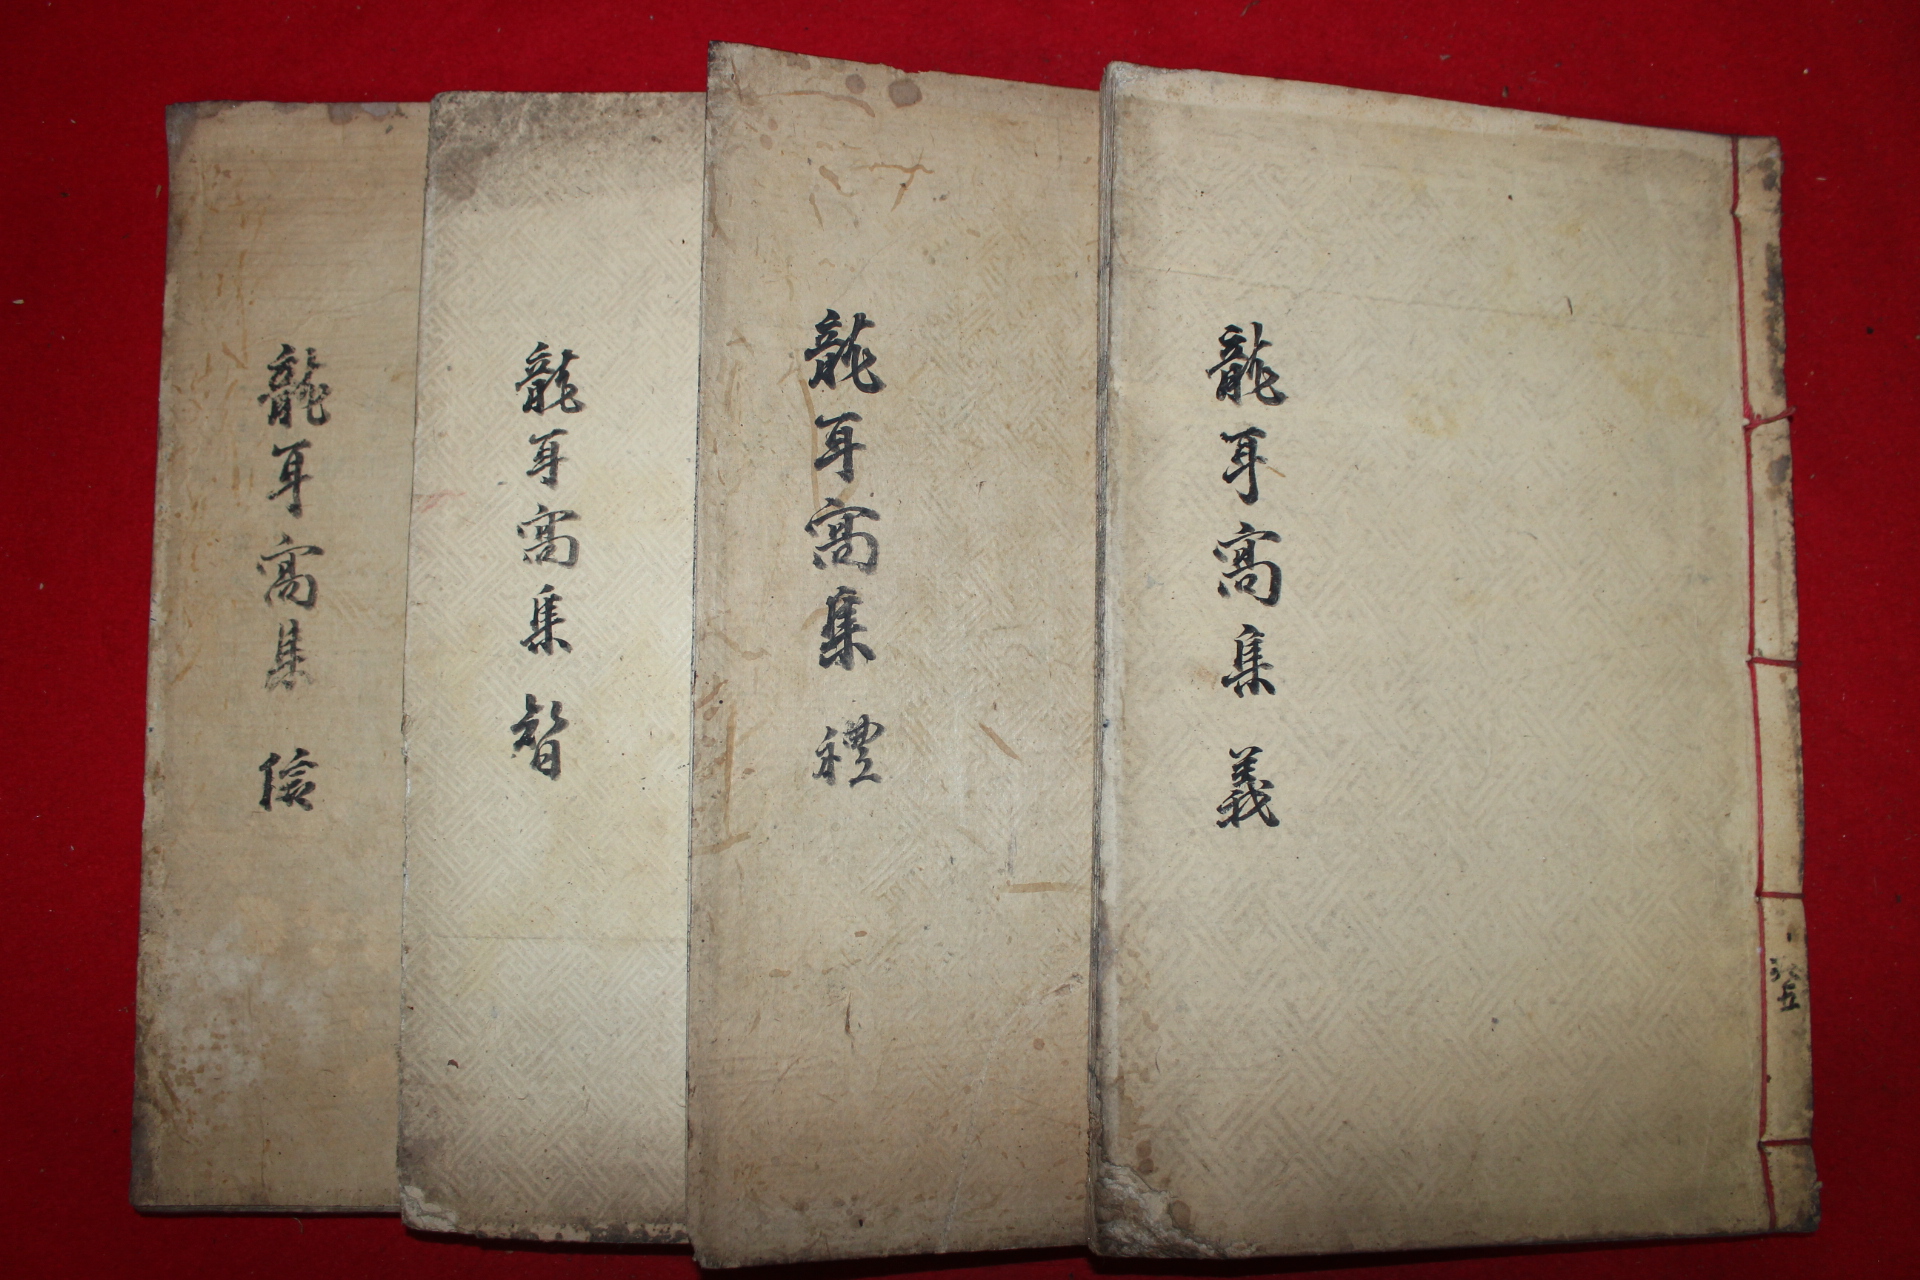 龍耳窩集 義
共五
龍耳窩集 禮
龍耳窩集 智
龍耳窩集 信